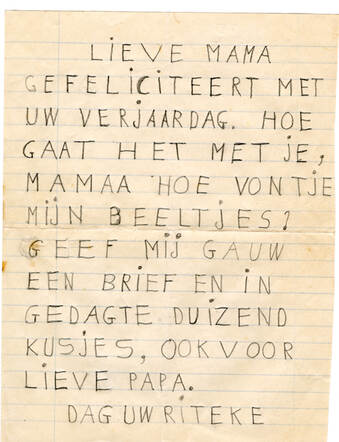 LIEVE MAMA
GEFELICITEERT MET
UW VERJAARDAG. HOE
GAAT HET MET JE,
MAMAA HOE VONTJE
MIJN BEELTJES?
GEEF MIJ GAUW
EEN BRIEF EN IN
GEDAGTE DUIZEND
KUSJES, OOK VOOR
LIEVE PAPA.
DAG UW RITEKE